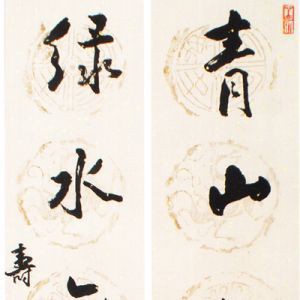 青山
绿水
壽